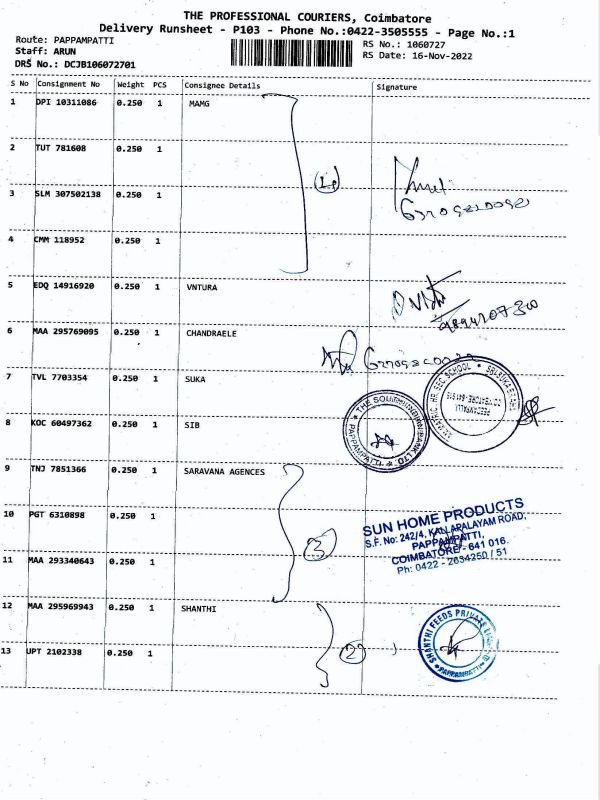 THE PROFESSIONAL COURIERS, Coimbatore
Delivery Runsheet - P103 - Phone No.:0422-3505555 - Page No.:1
Route: PAPPAMPATTI
Staff: ARUN
DRS No.: DCJB106072701
RS No.: 1060727
RS Date: 16-Nov-2022
S No Consignment No Weight PCS Consignee Details Signature
1 DPI 10311086 0.250 1 MAMG
2 TUT 781608 0.250 1
3 SLM 307502138 0.250 1
4 CMM 118952 0.250 1
5 EDQ 14916920 0.250 1 VNTURA
6 MAA 295769095 0.250 1 CHANDRAELE
7 TVL 7703354 0.250 1 SUKA
8 KOC 60497362 0.250 1 SIB
THE SOUTH INDIAN BANK LTD. PAPPAMPATTI
9 TNJ 7851366 0.250 1 SARAVANA AGENCES
10 PGT 6310898 0.250 1
3
SUN HOME PRODUCTS
S.F. No: 242/4, KALLAPALAYAM ROAD,
PAPPAMPATTI,
COIMBATORE - 641 016.
Ph: 0422 - 2634250 / 51
11 MAA 293340643 0.250 1
12 MAA 295969943 0.250 1 SHANTHI
13 UPT 2102338 0.250 1
2
SHANTHI FEEDS PRIVATE LIMITED PAPPAMPATTI